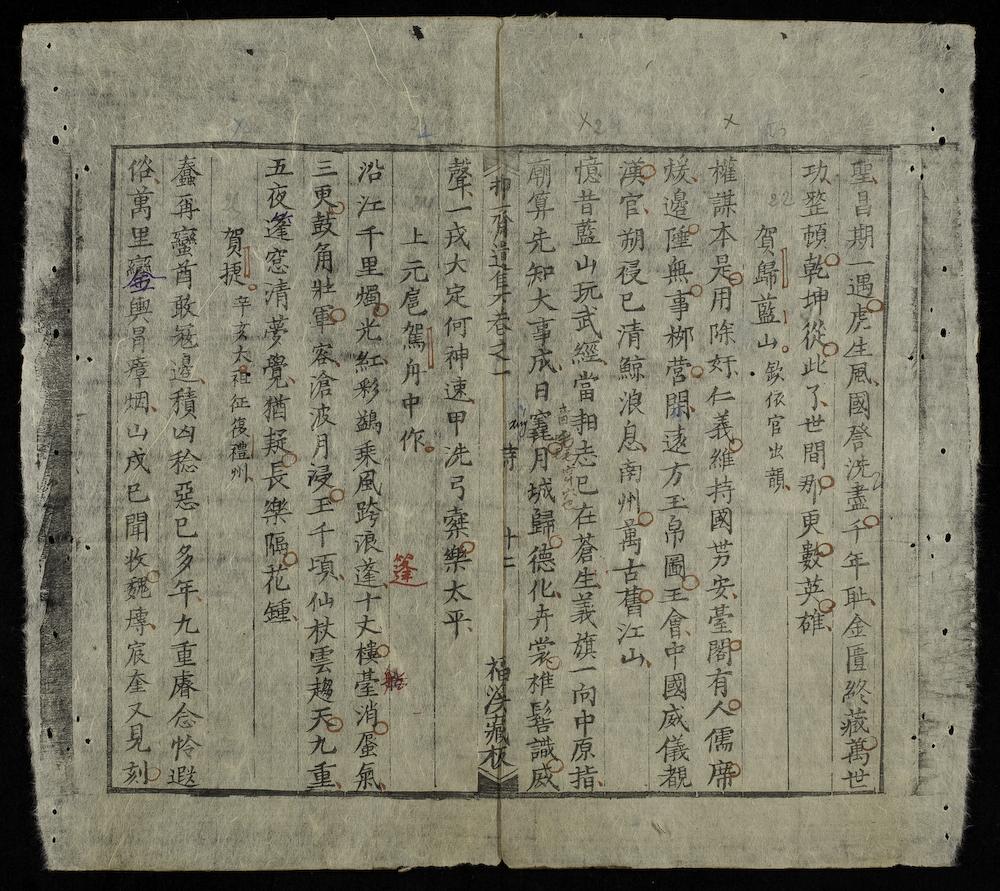 聖昌期一遇虎生風國讐洗盡千年耻金匱終藏萬世
功整頓乾坤從此了世間那更數英雄
賀歸藍山 欽依官出韻
權謀本是用除奸仁義維持國势安臺閣有人儒席
煖邊陲無事柳营閑遠方玉帛圖王會中國威儀覩
漢官朔祲已清鯨浪息南州萬古舊江山
憶昔藍山玩武經當时志已在蒼生義旗一向中原指
廟算先知大事成日月城歸德化卉裳椎髻識威
抑齋遺集卷之一 十二 福溪藏板
聲一戎大定何神速甲洗弓櫜樂太平
上元扈駕舟中作
沿江千里燭光紅彩鷁乘風跨浪蓬十丈樓臺消蜃氣
三更鼓角壯軍容滄波月浸玉千頃仙杖雲趨天九重
五夜篷窓清夢覺猶疑長樂隔花鍾
篷
賀捷 辛亥太祖征復禮州
蠢再蠻酋敢寇邊積凶稔惡已多年九重睿念怜遐
俗萬里鑾輿冐瘴烟山戍已聞收魏塼宸奎又見刻